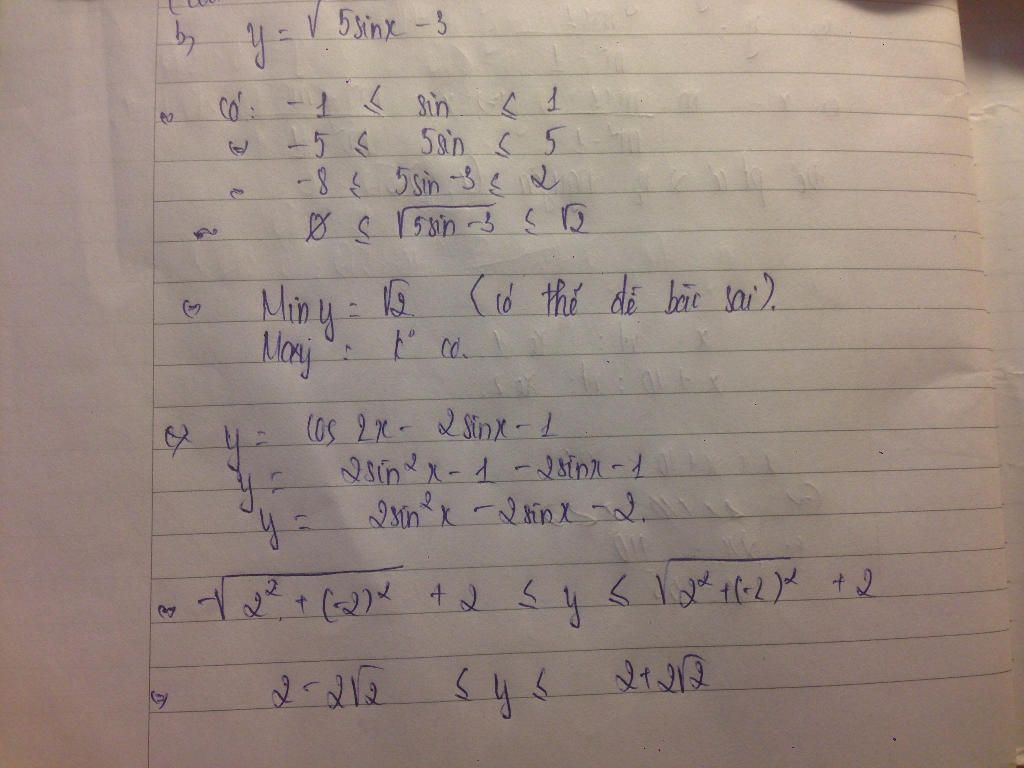 b, y = √5sinx - 3
có: -1 ≤ sin ≤ 1
⇔ -5 ≤ 5sin ≤ 5
-8 ≤ 5sin - 3 ≤ 2
∅ ≤ √5sin - 3 ≤ √2
⇔ Min y = √2 (có thể đề bài sai).
Max y = k° có.
c, y = cos 2x - 2sinx - 1
y = 2sin²x - 1 - 2sinx - 1
y = 2sin²x - 2sinx - 2.
⇔ -√2² + (-2)² + 2 ≤ y ≤ √2² + (-2)² + 2
⇔ 2 - 2√2 ≤ y ≤ 2 + 2√2